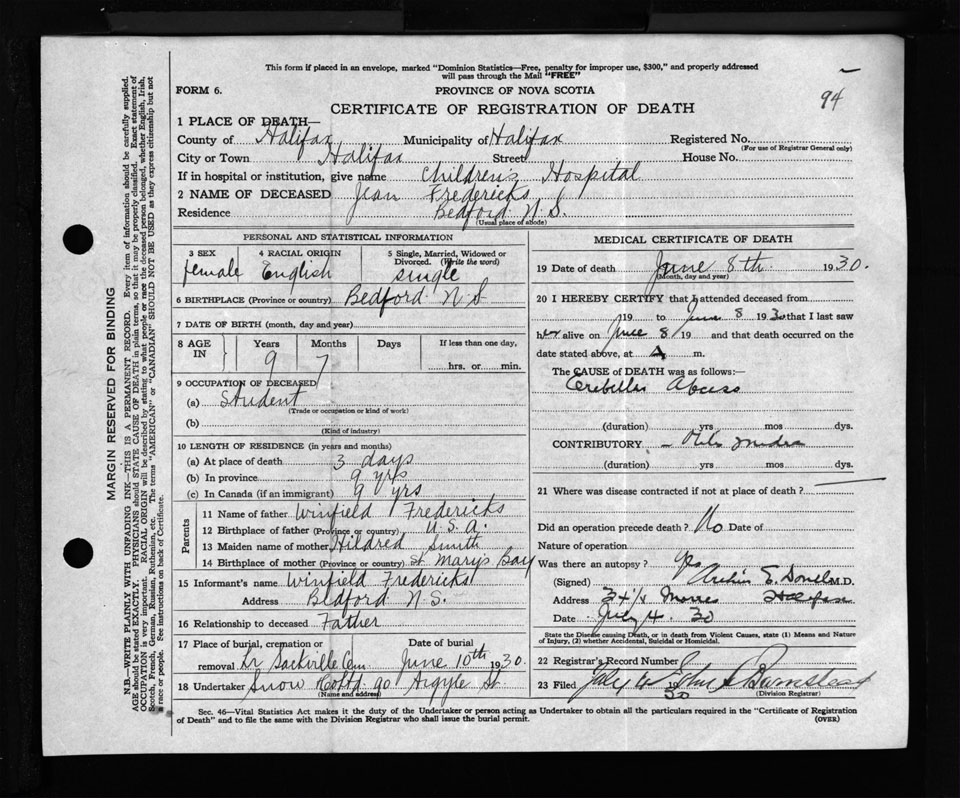 This form if placed in an envelope, marked "Dominion Statistics—Free, penalty for improper use, $300," and properly addressed
will pass through the Mail "FREE"
94
FORM 6.
PROVINCE OF NOVA SCOTIA
CERTIFICATE OF REGISTRATION OF DEATH
1 PLACE OF DEATH—
County of Halifax Municipality of Halifax Registered No.
(For use of Registrar General only)
City or Town Halifax Street House No.
If in hospital or institution, give name Children's Hospital
2 NAME OF DECEASED Jean Fredericks
Residence Bedford N.S.
(Usual place of abode)
PERSONAL AND STATISTICAL INFORMATION
3 SEX 4 RACIAL ORIGIN 5 Single, Married, Widowed or
Divorced. (Write the word)
female English single
6 BIRTHPLACE (Province or country) Bedford N S
7 DATE OF BIRTH (month, day and year)
8 AGE IN Years Months Days If less than one day,
9 7 hrs. or min.
9 OCCUPATION OF DECEASED
(a) Student
(Trade or occupation or kind of work)
(b)
(Kind of industry)
10 LENGTH OF RESIDENCE (in years and months)
(a) At place of death 3 days
(b) In province 9 yrs
(c) In Canada (if an immigrant) 9 yrs
Parents
11 Name of father Winfield Fredericks
12 Birthplace of father (Province or country) U.S.A.
13 Maiden name of mother Hildred Smith
14 Birthplace of mother (Province or country) St. Mary's Bay
15 Informant's name Winfield Fredericks
Address Bedford N.S.
16 Relationship to deceased Father
17 Place of burial, cremation or Date of burial
removal Lr Sackville Cem June 10th 1930.
18 Undertaker Snow & Co Ltd 90 Argyle St.
(Name and address)
MEDICAL CERTIFICATE OF DEATH
19 Date of death June 8th 1930.
(Month, day and year)
20 I HEREBY CERTIFY that I attended deceased from
19 to June 8 1930 that I last saw
her alive on June 8 19 and that death occurred on
the date stated above, at A m.
The CAUSE OF DEATH was as follows:—
Cerebellar Abcess
(duration) yrs mos dys.
CONTRIBUTORY Otitis media
(duration) yrs mos dys.
21 Where was disease contracted if not at place of death?
Did an operation precede death? No Date of
Nature of operation
Was there an autopsy? Yes
(Signed) M.D.
Address Morris Halifax
Date July 4 30
State the Disease causing Death, or in death from Violent Causes, state (1) Means and Nature
of Injury, (2) whether Accidental, Suicidal or Homicidal.
22 Registrar's Record Number
23 Filed July 30 John
(Division Registrar)
Sec. 46—Vital Statistics Act makes it the duty of the Undertaker or person acting as Undertaker to obtain all the particulars required in the "Certificate of Registration
of Death" and to file the same with the Division Registrar who shall issue the burial permit.
(OVER)
MARGIN RESERVED FOR BINDING
N.B.—WRITE PLAINLY WITH UNFADING INK—THIS IS A PERMANENT RECORD. Every item of information should be carefully supplied.
AGE should be stated EXACTLY. PHYSICIANS should STATE CAUSE OF DEATH in plain terms, so that it may be properly classified. Exact statement of
OCCUPATION is very important. RACIAL ORIGIN will be described by stating to what people or race the deceased person belonged, whether English, Irish,
Scotch, French, German, Russian, Ruthenian, etc. The terms "AMERICAN" or "CANADIAN" SHOULD NOT BE USED as they express citizenship but not
a race or people. See instructions on back of Certificate.